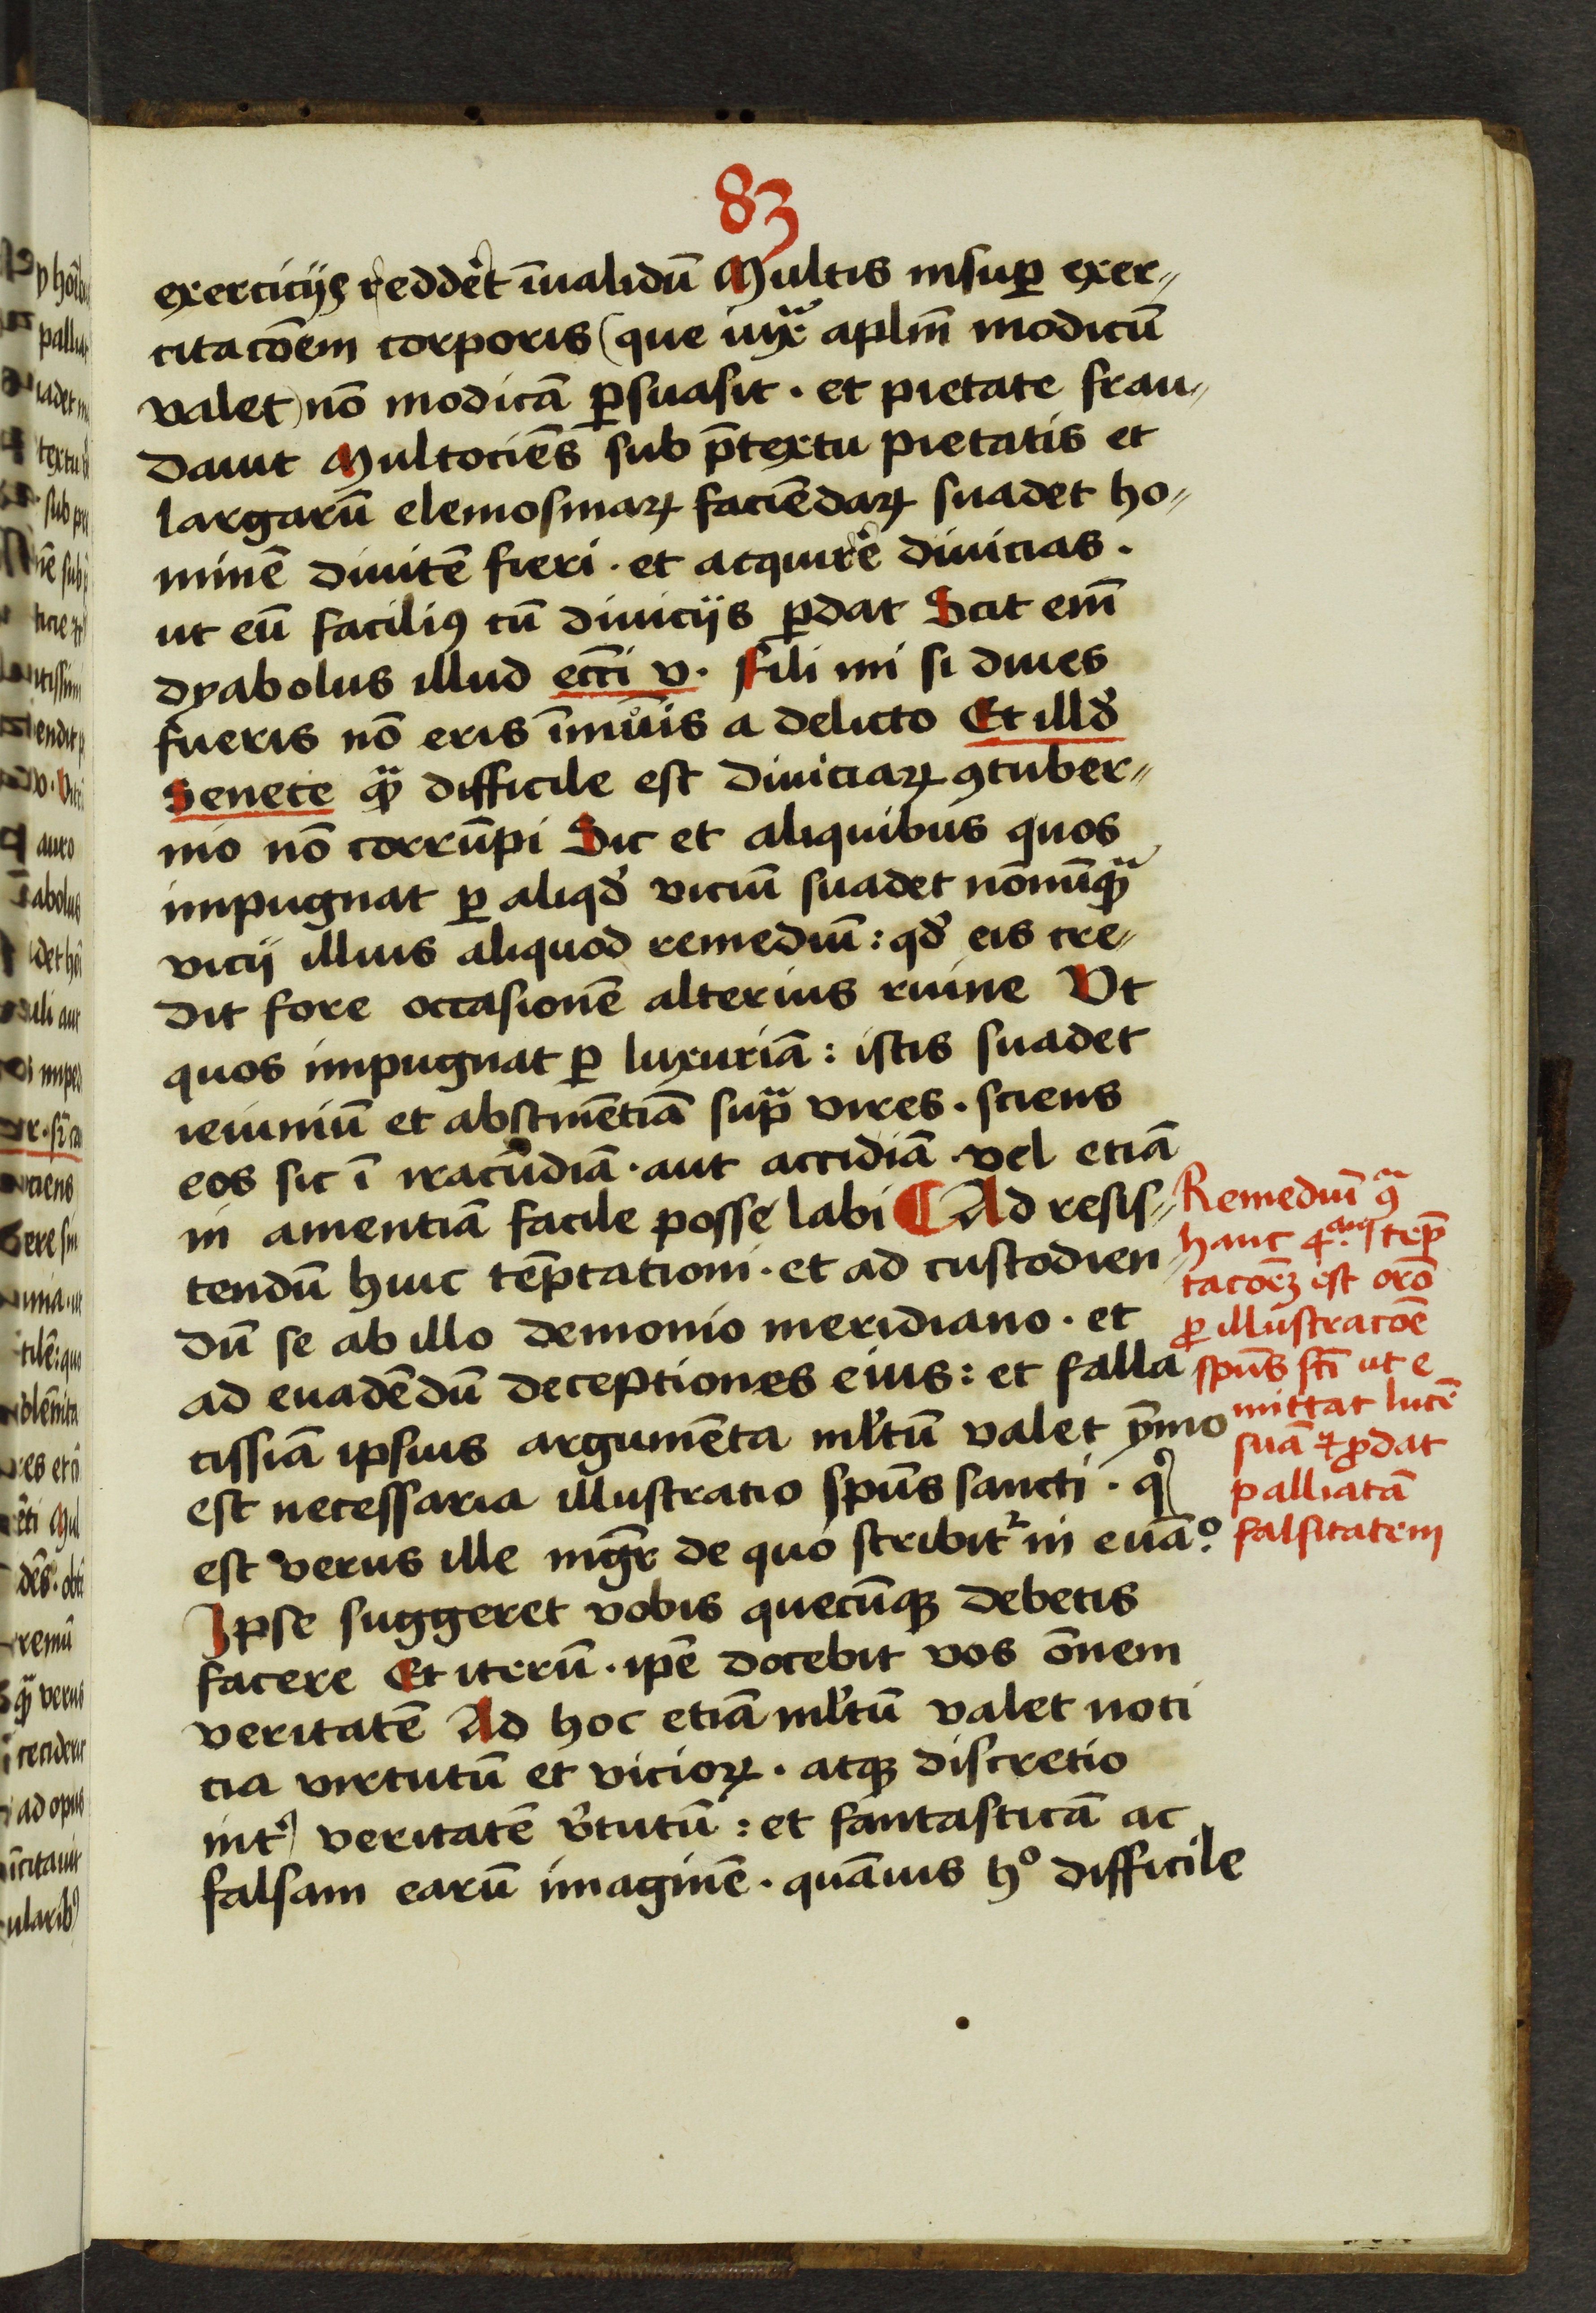 83
exerciciis reddẽt ĩualidũ Multis insuꝑ exer〃
citacõem corporis (que iuxᵃ aplm̃ modicũ
valet) nõ modicã ꝑsuasit · et pietate frau〃
dauit Multociẽs sub p̃textu pietatis et
largarũ elemosinaꝝ faciẽdaꝝ suadet ho〃
minẽ diuitẽ fieri · et acquirẽ diuicias ·
ut eũ faciliꝰ cũ diuiciis ꝑdat Scit em̃
dyabolus illud ecc̃i v · Fili mi si diues
fueris nõ eris ĩmũis a delicto Et illđ
Senece qᵃ̃ difficile est diuiciaꝝ ꝯtuber〃
nio nõ corrũpi Sic et aliquibus quos
impugnat ꝑ aliqđ viciũ suadet nõnũqᵃ̃
vicii illius aliquod remediũ : qđ eis cre〃
dit fore occasionẽ alterius ruine Vt
quos impugnat ꝑ luxuriã : istis suadet
ieiuniũ et abstinẽtiã supᵃ vires · sciens
eos sic ĩ iracũdiã · aut accidiã · vel etiã
in amentiã facile posse labi ¶ Ad resis〃
tendũ huic tẽptationi · et ad custodien〃
dũ se ab illo demonio meridiano · et
ad euadẽdũ deceptiones eius : et falla
cissiã ipsius argumẽta ml̃tũ valet ȳmo
est necessaria illustratio sp̃us sancti · qͥ
est verus ille mgr̃ de quo scribitᷣ in euã°
Ipse suggeret vobis quecũqꝫ debetis
facere Et iterũ · ip̃e docebit vos õnem
veritatẽ Ad hoc etiã ml̃tũ valet noti
cia virtutũ et vicioꝝ · atqꝫ discretio
int̓ veritatẽ v̓tutũ : et fantasticã ac
falsam earũ imaginẽ · quãuis h° difficile
Remediũ ꝯᵃ
hanc 4ᵃᵐ tẽp
tacõeꝫ est orõ
ꝓ illustracõe
sp̃us sc̃i ut e
mittat lucẽ
suã ⁊ ꝓdat
palliatã
falsitatem